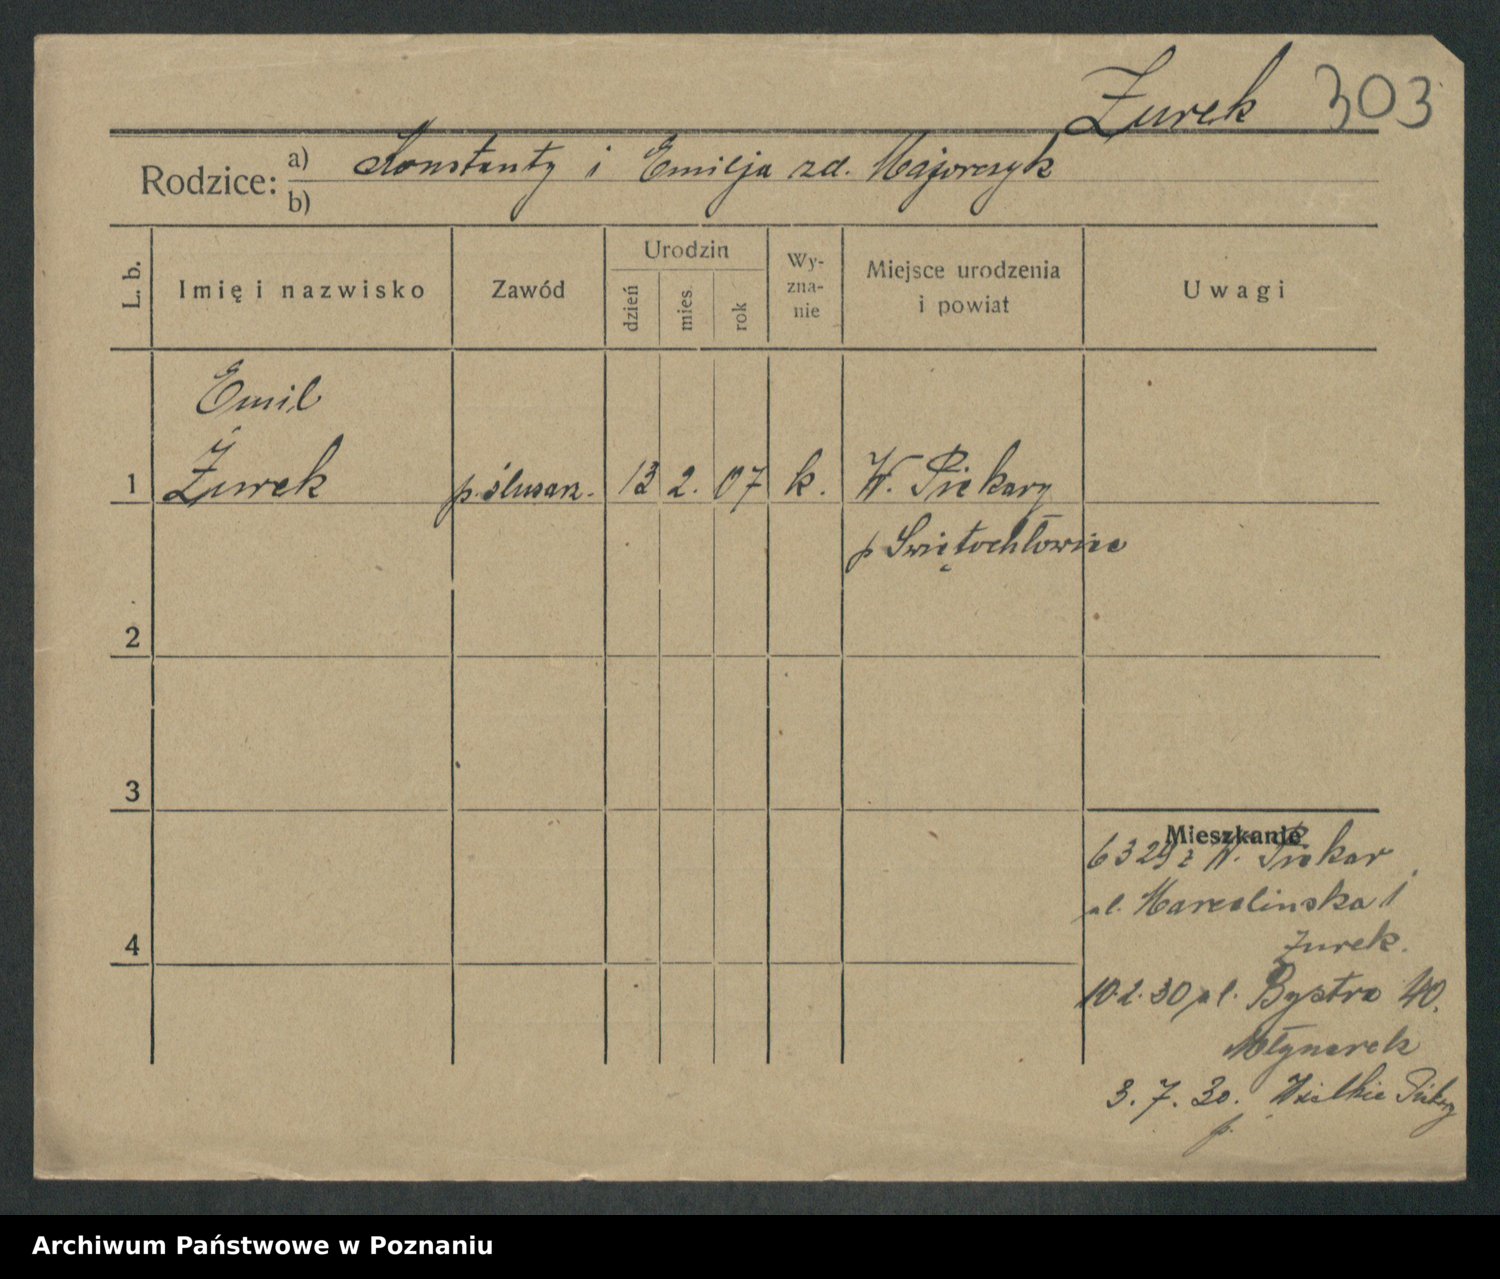 Żurek 303
Rodzice: a) Konstanty i Emilja zd. Majorczyk
b)
L. b.
Imię i nazwisko
Zawód
Urodzin
dzień
mies.
rok
Wy-
zna-
nie
Miejsce urodzenia
i powiat
Uwagi
Emil
1 Żurek p. ślusarz. 13 2. 07 k. W. Piekary
p Świętochłowice
2
3
Mieszkanie
6329 z W. Piekar
ul. Marcelinska 1
Żurek.
4
10.2.30 ul. Bystra 40.
Młynarek
3. 7. 30. Wielkie Piekary
p.
Archiwum Państwowe w Poznaniu